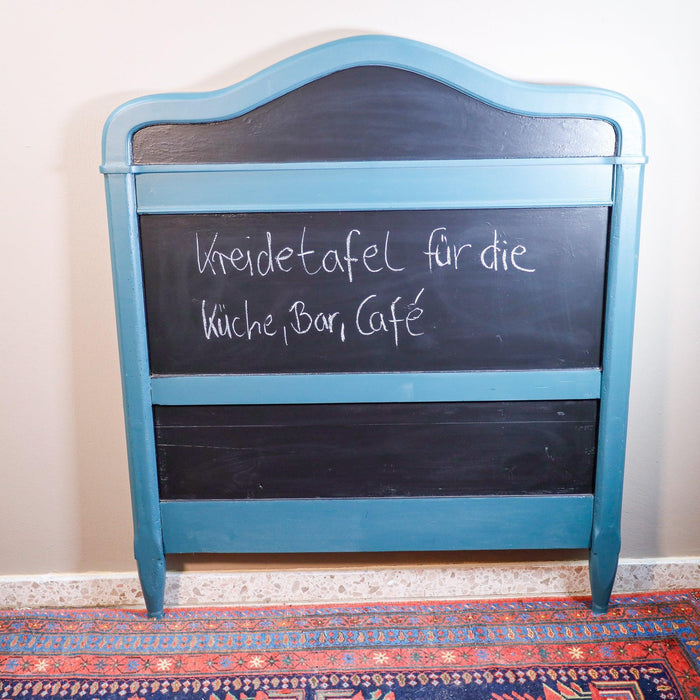 Kreidetafel für die
Küche, Bar, Café